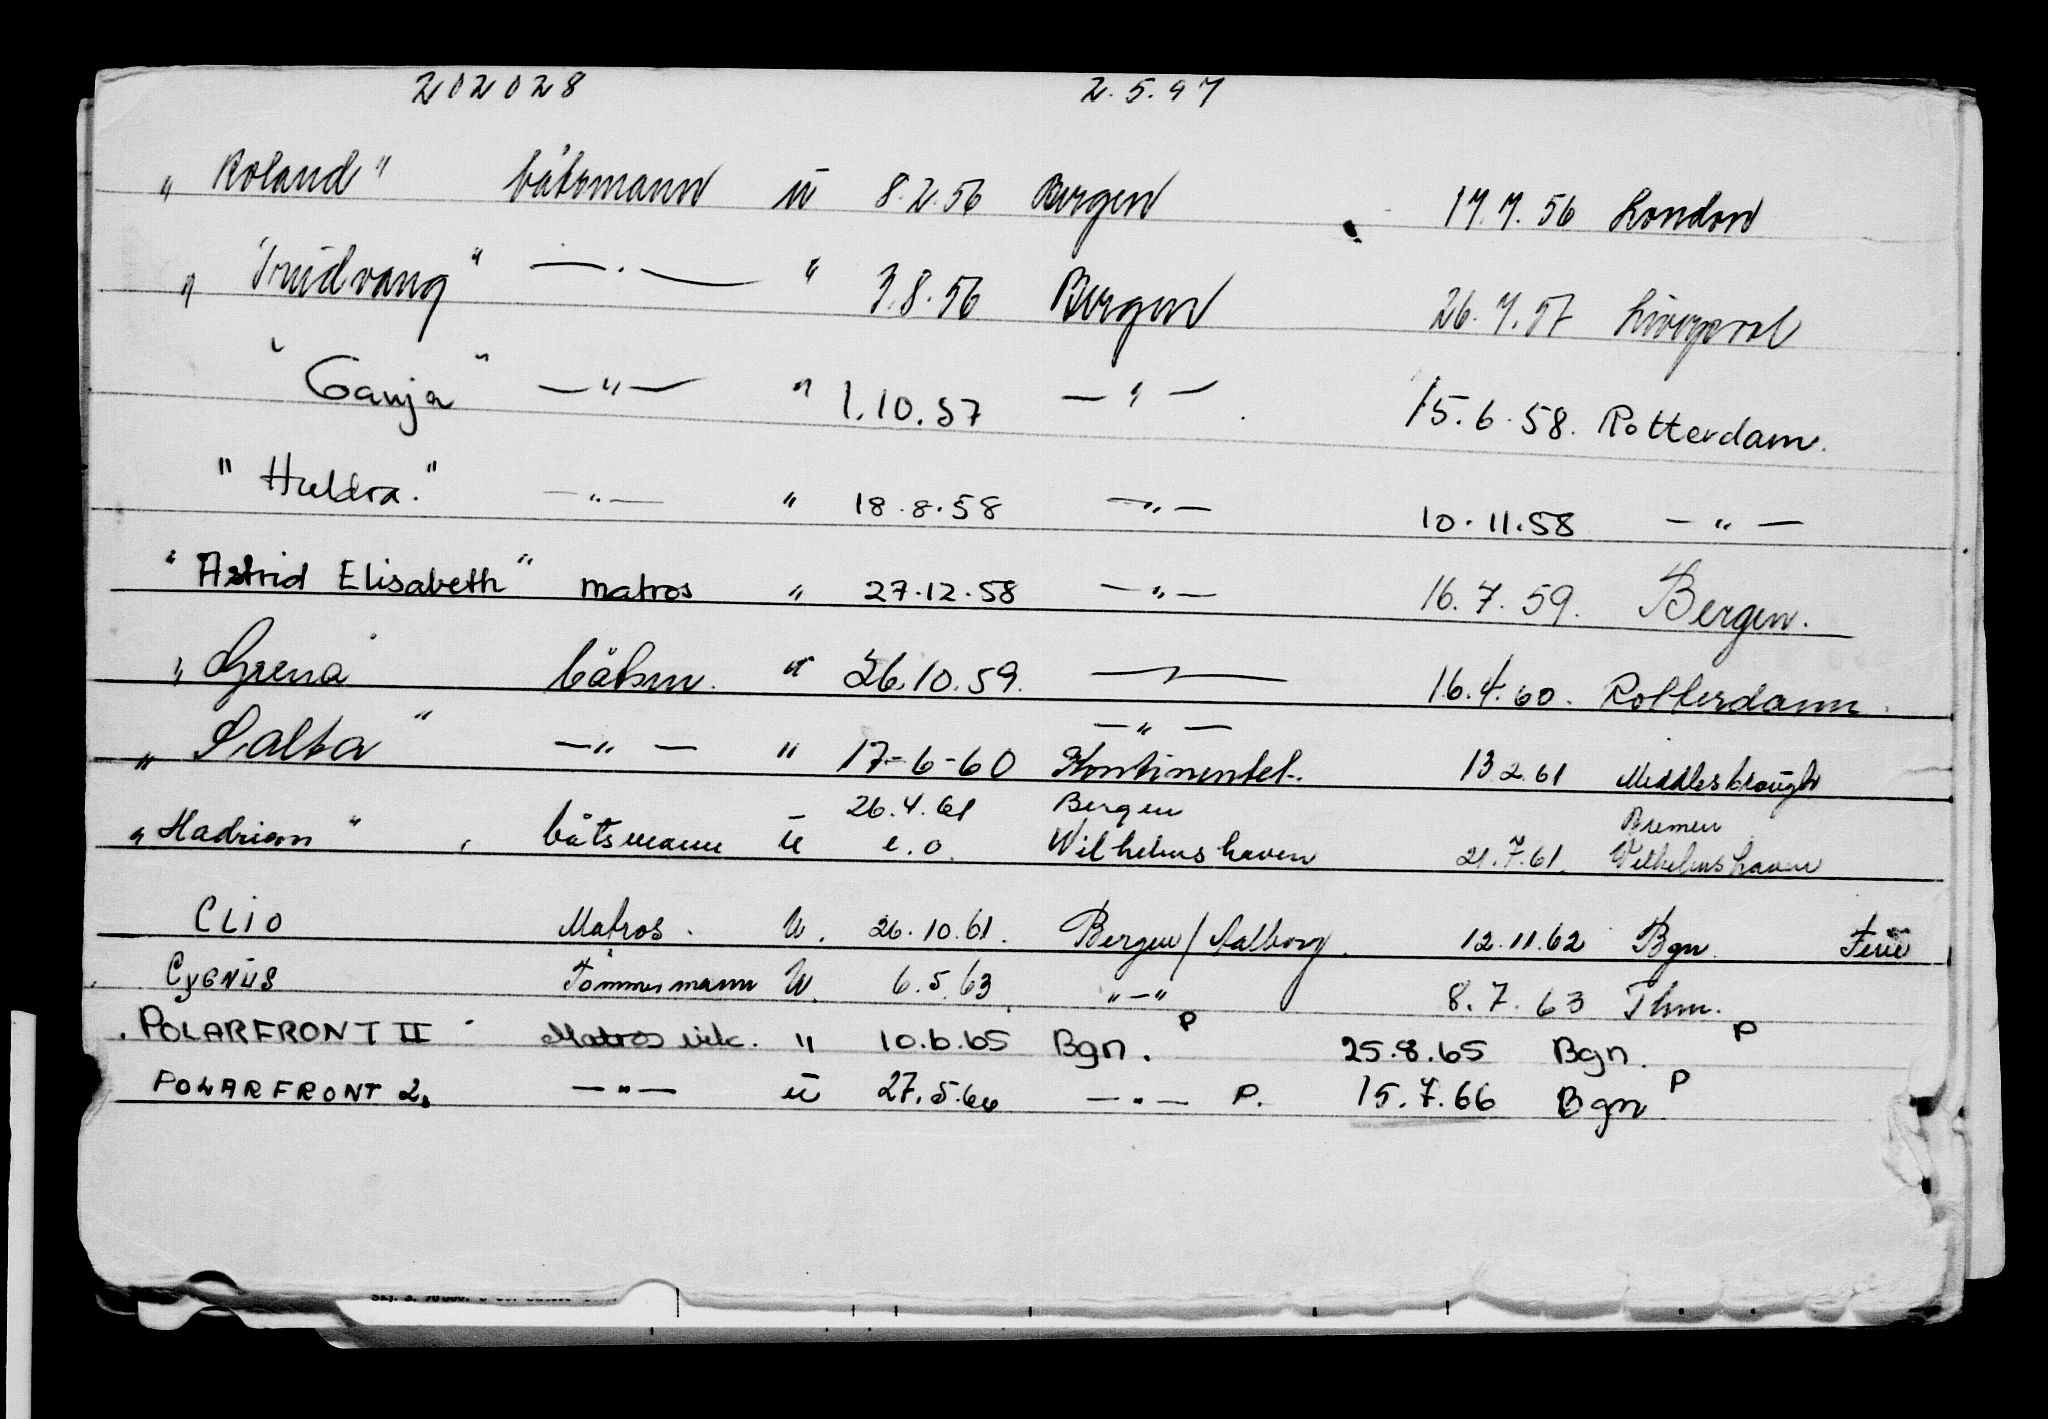 202028 2.5.47
„Roland" båtsmann u 8.2.56 Bergen 17.7.56 London
„Trudvang" —.— " 3.8.56 Bergen 26.7.57 Liverpool
"Ganja" —"— " 1.10.57 —"— 15.6.58. Rotterdam.
"Huldra." —"— " 18.8.58 —"— 10.11.58 —"—
"Astrid Elisabeth" matros " 27.12.58 —"— 16.7.59. Bergen.
„Grena" båtsm. " 26.10.59. —"— 16.4.60. Rotterdam.
—"—
„Salta" —"— " 17-6-60 Kontinentet. 13.2.61 Middlesbrough
26.4.61 Bergen Bremen
„Hadrian" båtsmann u e.o. Wilhelmshaven 21.7.61. Wilhelmshaven
CLIO Matros. U. 26.10.61. Bergen/Aalborg. 12.11.62 Bgn. Ferie
CYGNUS Tømmermann U. 6.5.63 "—" 8.7.63 Thm.
POLARFRONT II Matros vik. " 10.6.65 Bgn. P 25.8.65 Bgn. P
POLARFRONT 2. —"— u 27.5.66 —"— P. 15.7.66 Bgn P